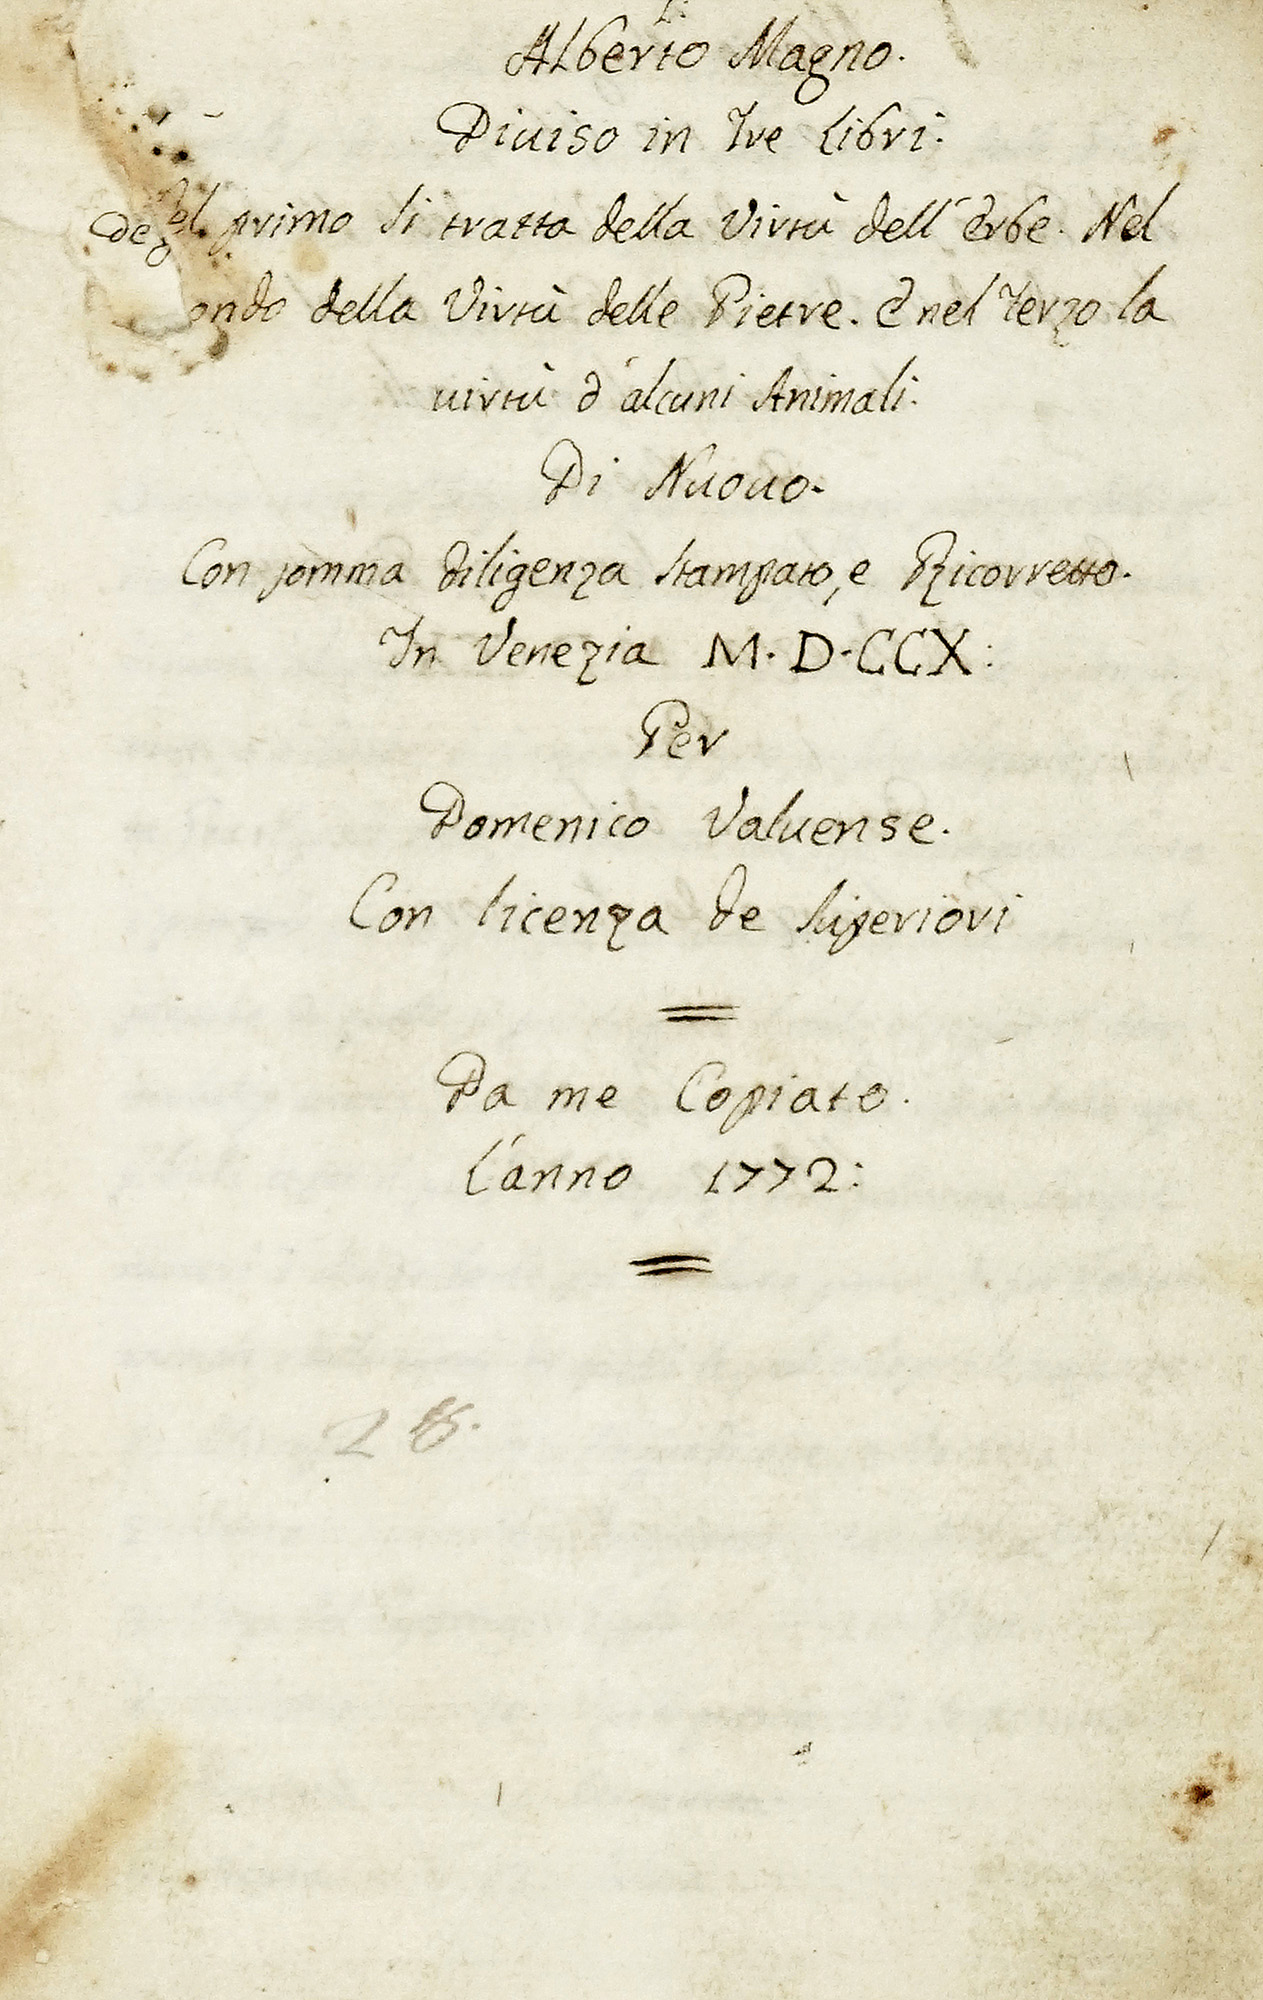 Alberto Magno.
Diuiso in Tre Libri:
primo si tratta della Virtù dell'Erbe. Nel
ondo della Virtù delle Pietre. E nel Terzo la
uirtù d'alcuni Animali.
Di Nuouo.
Con somma diligenza stampato, e Ricorretto.
In Venezia M.D.CCX:
Per
Domenico Valuense.
Con licenza de Superiori
Da me Copiato.
L'anno 1772: